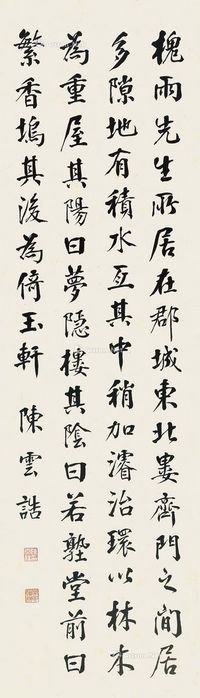 槐雨先生所居在郡城東北婁齊門之間居
多隙地有積水亙其中稍加濬治環以林木
為重屋其陽曰夢隱樓其陰曰若墅堂前曰
繁香塢其後為倚玉軒 陳雲誥